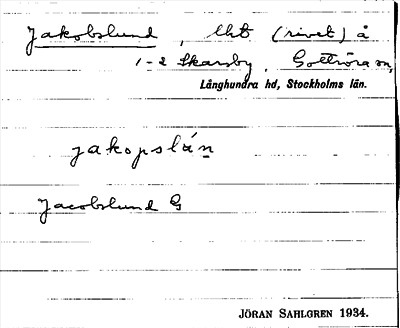 Jakobslund, lht (rivet) å
1-2 Skarsby, Gottröra sn,
Långhundra hd, Stockholms län.
jakopslán̲
Jacobslund G
JÖRAN SAHLGREN 1934.